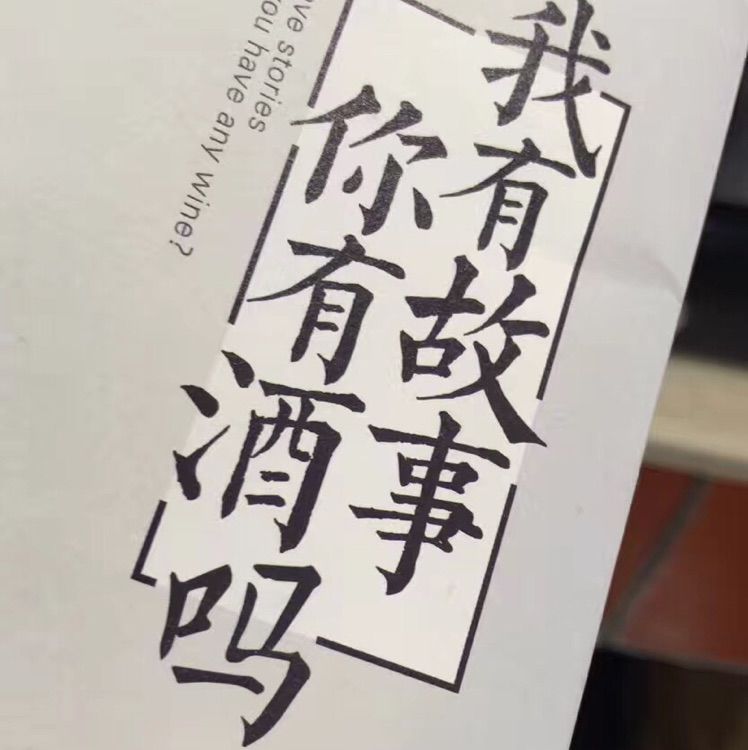 我有故事
你有酒吗
ve stories
you have any wine?